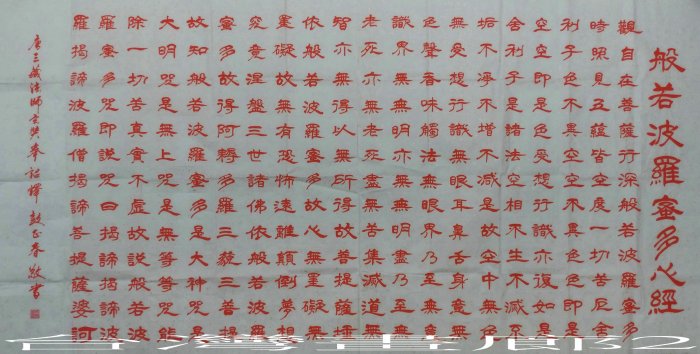 般若波羅蜜多心經
觀自在菩薩行深般若波羅蜜多
時照見五蘊皆空度一切苦厄舍
利子色不異空空不異色色即是
空空即是色受想行識亦復如是
舍利子是諸法空相不生不滅不
垢不淨不增不減是故空中無色
無受想行識無眼耳鼻舌身意無
色聲香味觸法無眼界乃至無意
識界無無明亦無無明盡乃至無
老死亦無老死盡無苦集滅道無
智亦無得以無所得故菩提薩埵
依般若波羅蜜多故心無罣礙無
罣礙故無有恐怖遠離顛倒夢想
究竟涅盤三世諸佛依般若波羅
蜜多故得阿耨多羅三藐三菩提
故知般若波羅蜜多是大神咒是
大明咒是無上咒是無等等咒能
除一切苦真實不虛故說般若波
羅蜜多咒即說咒曰揭諦揭諦波
羅揭諦波羅僧揭諦菩提薩婆訶
唐三藏法師玄奘奉詔譯 春敬書